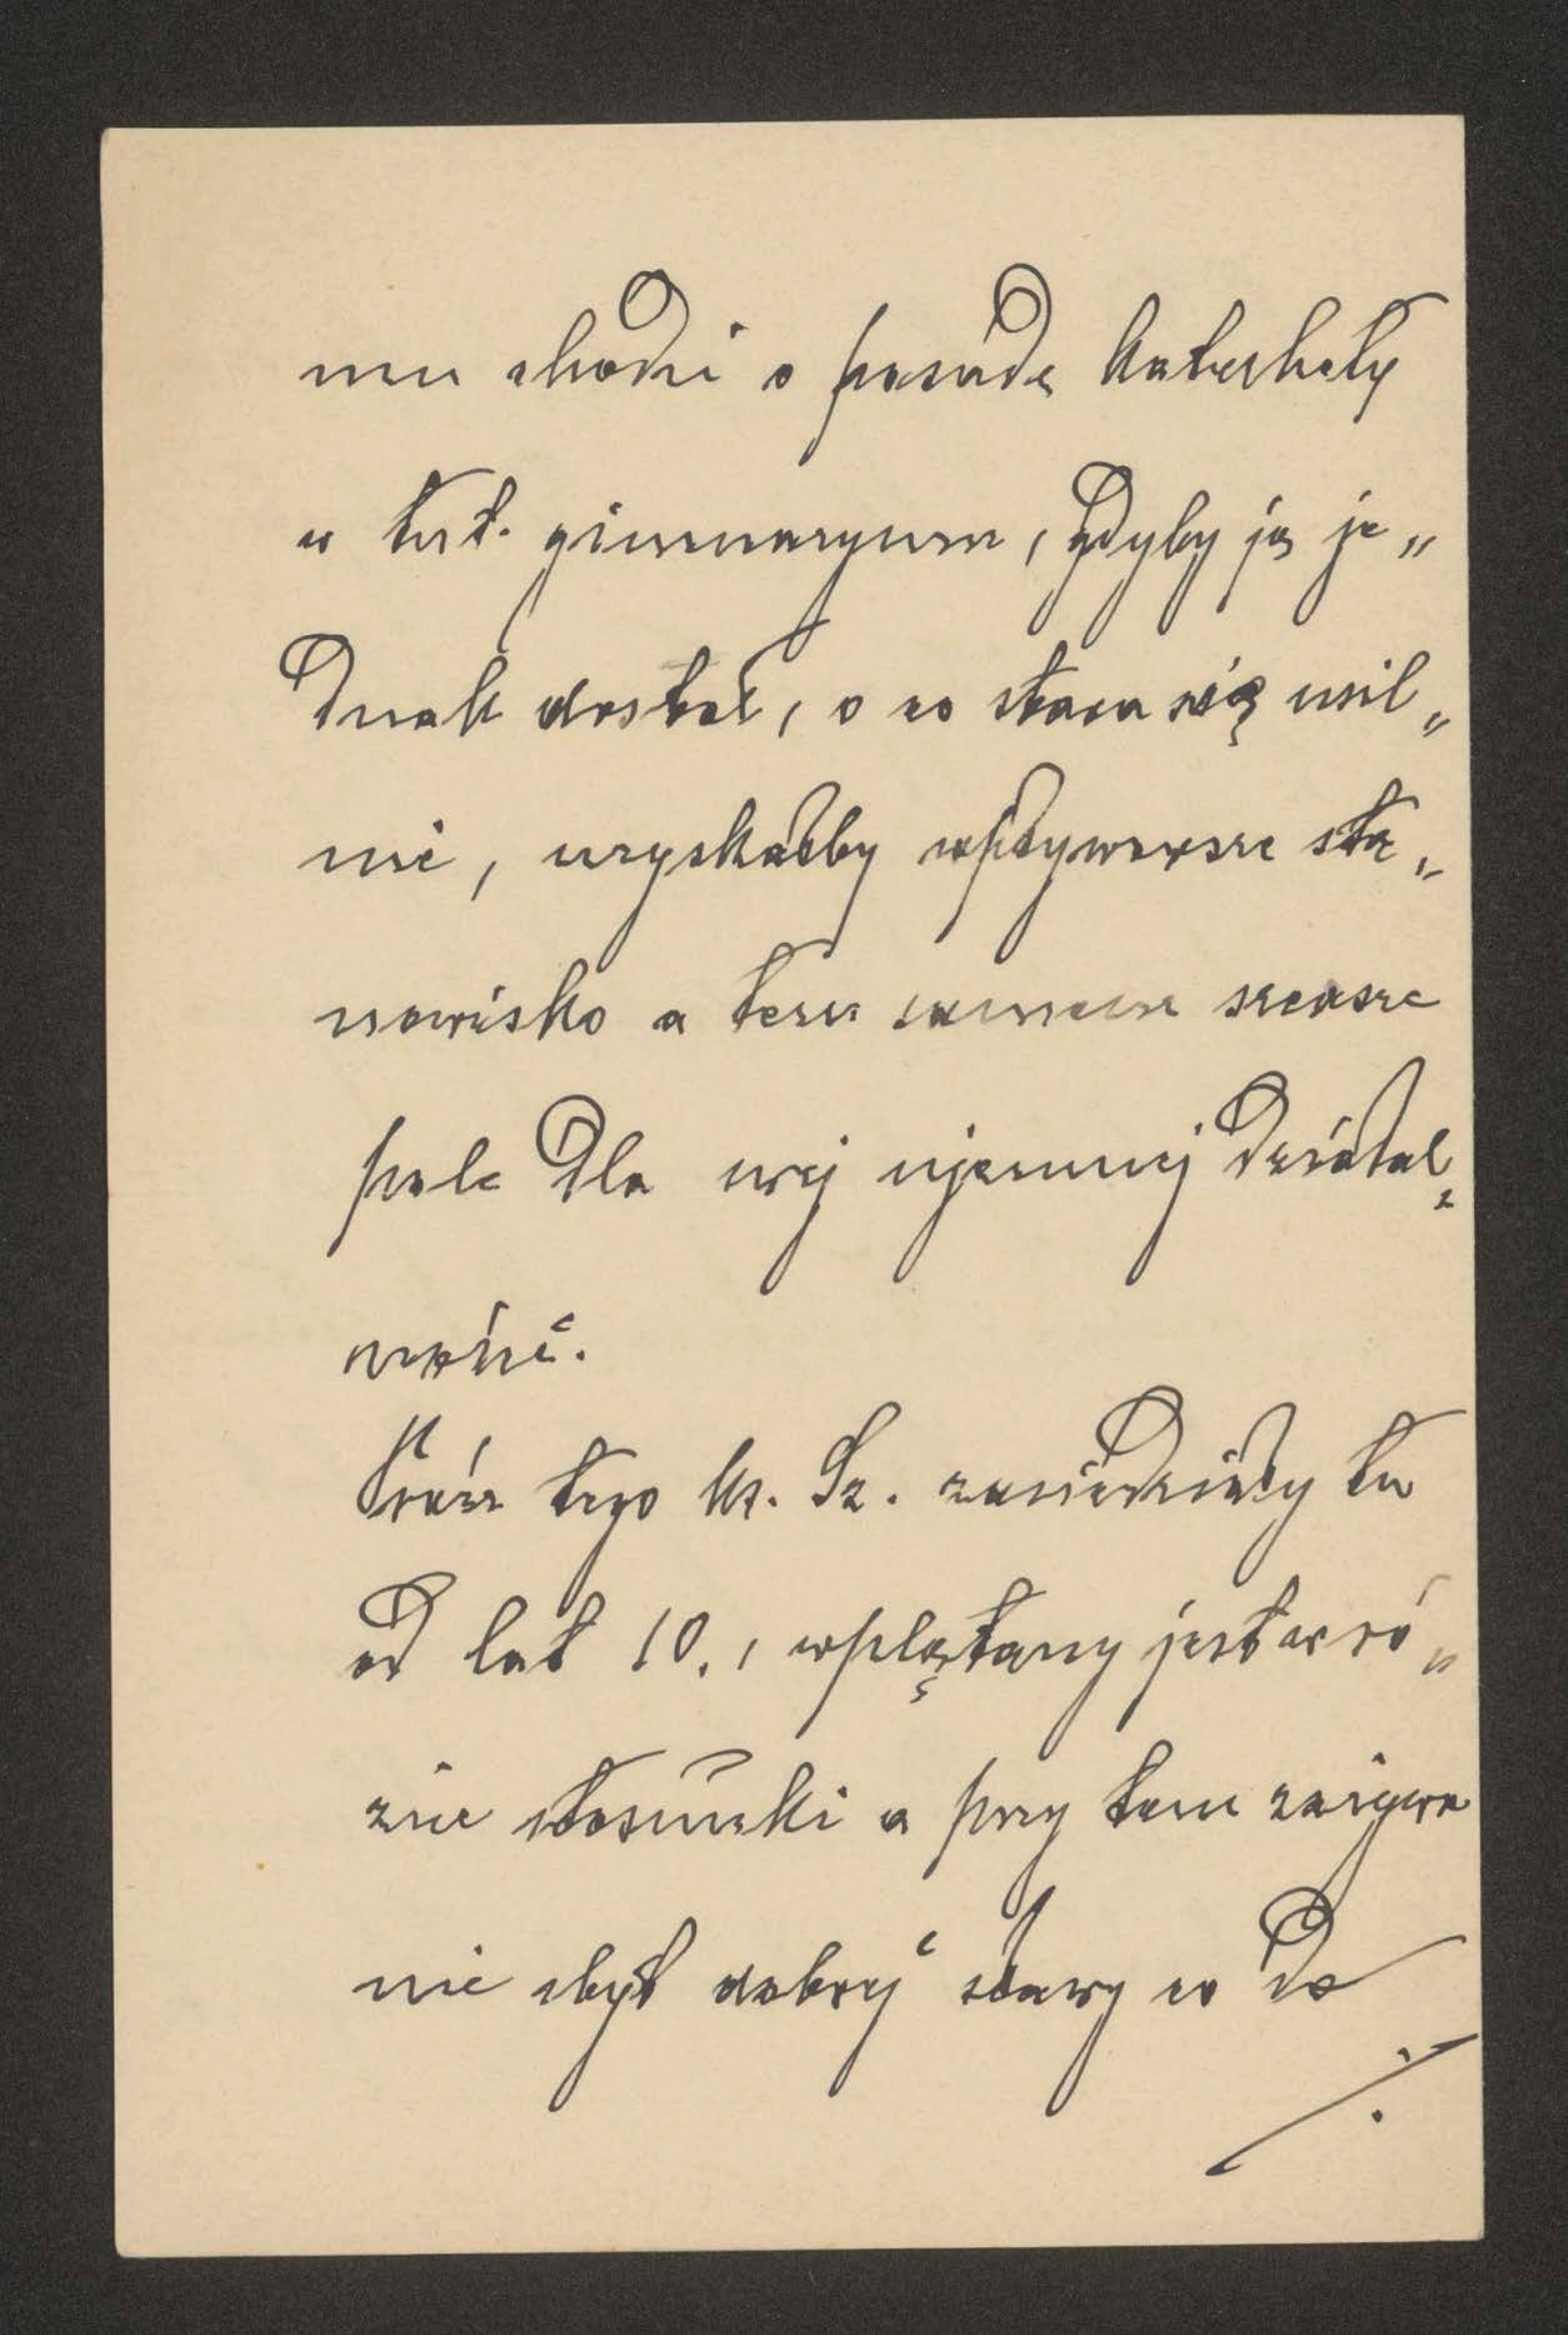 mu chodzi o posadę katechety
w tut. gimnazyum, gdyby ją je„
dnak dostał, o co stara się usil„
nie, uzyskałby wpływowsze sta„
nowisko a tem samem szersze
pole dla swej ujemnej działal„
ności.
Prócz tego ks. Sz. zasiedziały tu
od lat 10., wplątany jest w ró„
żne stosunki a przy tem zażywa
nie zbyt dobrej sławy co do
./.